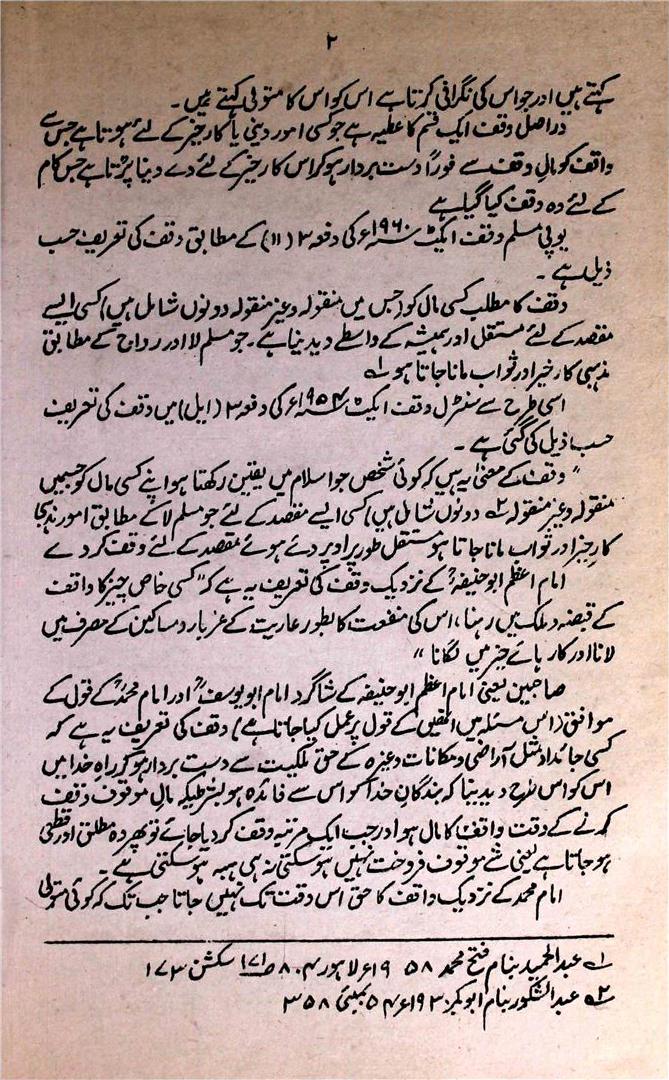 ۲
کہتے ہیں اور جو اس کی نگرانی کرتا ہے اس کو اس کا متولی کہتے ہیں۔
دراصل وقف ایک قسم کا عطیہ ہے جو کسی امور دینی یا کارخیر کے لئے ہوتا ہے جس سے
واقف کو مالِ وقف سے فوراً دست بردار ہو کر اس کارخیر کے لئے دے دینا پڑتا ہے جس کام
کے لئے وہ وقف کیا گیا ہے
یوپی مسلم وقف ایکٹ ۱۹۶۰ء کی دفعہ ۳ (۱۱) کے مطابق وقف کی تعریف حسب
ذیل ہے۔
وقف کا مطلب کسی مال کو (جس میں منقولہ وغیر منقولہ دونوں شامل ہیں) کسی ایسے
مقصد کے لئے مستقل اور ہمیشہ کے واسطے دیدینا ہے۔ جو مسلم لا اور رواج کے مطابق
مذہبی کارخیر اور ثواب مانا جاتا ہو ۱؎
اسی طرح سے سنٹرل وقف ایکٹ ۱۹۵۴ء کی دفعہ ۳ (ایل) میں وقف کی تعریف
حسب ذیل کی گئی ہے۔
" وقف کے معنیٰ یہ ہیں کہ کوئی شخص جو اسلام میں یقین رکھتا ہو اپنے کسی مال کو جسمیں
منقولہ وغیر منقولہ ۲؎ دونوں شامل ہیں) کسی ایسے مقصد کے لئے جو مسلم لا کے مطابق امور مذہبی
کارخیر اور ثواب مانا جاتا ہو مستقل طور پر اوپر دے ہوئے مقصد کے لئے وقف کر دے
امام اعظم ابو حنیفہؒ کے نزدیک وقف کی تعریف یہ ہے کہ "کسی خاص چیز کا واقف
کے قبضہ و ملک میں رہنا، اس کی منفعت کا بطور عاریت کے غربار و مساکین کے مصرف میں
لانا اور کارہائے خیر میں لگانا "
صاحبین یعنی امام اعظم ابو حنیفہ کے شاگرد امام ابو یوسفؒ اور امام محمدؒ کے قول کے
موافق (اس مسئلہ میں انھیں کے قول پر عمل کیا جاتا ہے) وقف کی تعریف یہ ہے کہ
کسی جائداد مثل آراضی و مکانات وغیرہ کے حق ملکیت سے دست بردار ہو کر راہ خدا میں
اس کو اس طرح دیدینا کہ بندگانِ خدا کو اس سے فائدہ ہو بشرطیکہ مالِ موقوف وقف
کرنے کے وقت واقف کا مال ہو اور جب ایک مرتبہ وقف کر دیا جائے تو پھر وہ مطلق اور قطعی
ہو جاتا ہے یعنی شے موقوف فروخت نہیں ہو سکتی نہ ہی ہبہ ہو سکتی ہے۔
امام محمد کے نزدیک واقف کا حق اس وقت تک نہیں جاتا جب تک کہ کوئی متولی
۱؎ عبدالحمید بنام فتح محمد ۱۹۵۸ء لاہور ۸۰۴ ص ۱۷۱ سکشن ۱۷۳
۲؎ عبدالشکور بنام ابوبکر ۱۹۳۰ء ۵۴ بمبئی ۳۵۸